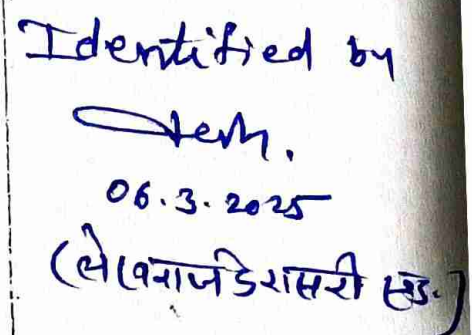 Identified by
06.3.2025
(लेखराज डेरासरी एड.)